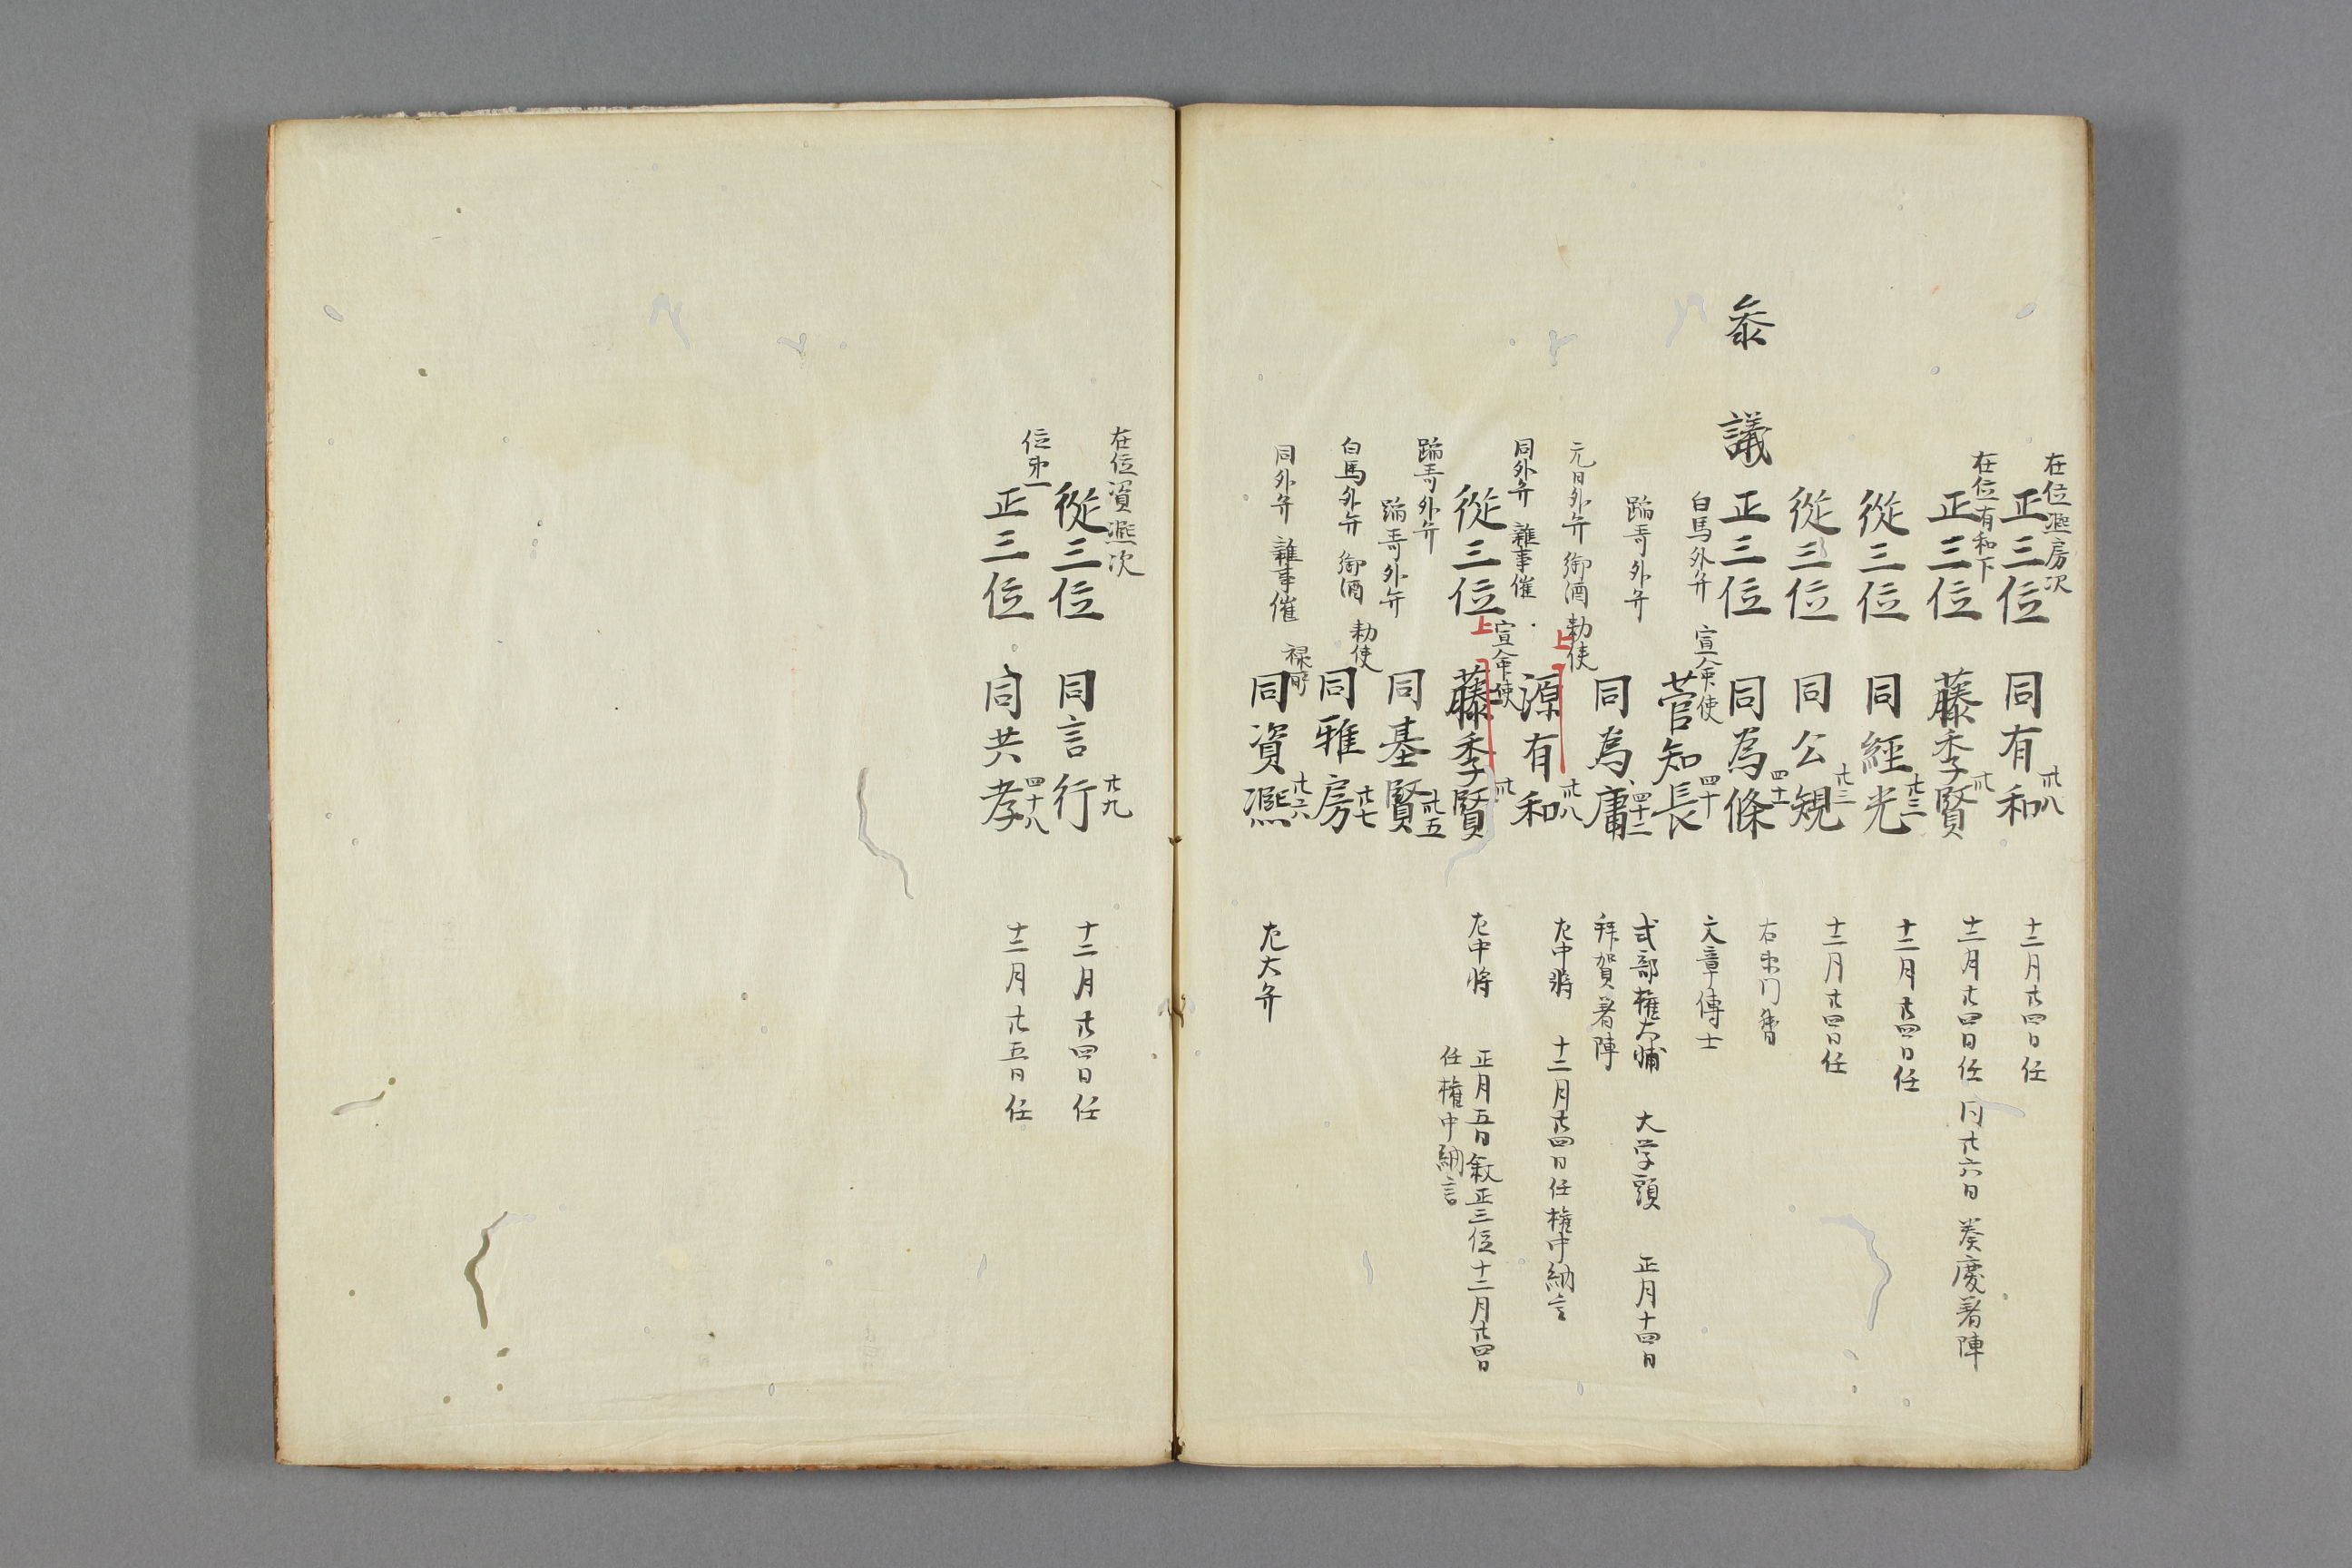 在位凞房次
正三位 同有和 卅八 十二月廿四日任
在位有和下
正三位 藤季賢 卅 十二月廿四日任 同廿六日 奏慶著陣
從三位 同經光 廿三 十二月廿四日任
從三位 同公䂓 廿三 十二月廿四日任
參議
正三位 同為條 四十一 右衛門督
白馬外弁 宣命使
菅知長 四十 文章博士
踏哥外弁
同為庸 四十二 式部権大輔 大学頭 正月十四日
拜賀著陣
元日外弁 御酒勅使
上 源有和 卅八 左中将 十二月廿四日任権中納言
同外弁 雜事催 宣命使
從三位 上 藤季賢 卅 左中将 正月五日叙正三位十二月廿四日
任権中納言
踏哥外弁
踏哥外弁
同基賢 卅五
白馬外弁 御酒勅使
同雅房 廿七
同外弁 雜事催 禄所
同資凞 廿六 左大弁
在位資凞次
從三位 同言行 廿九 十二月廿四日任
位次一
正三位 同共孝 四十八 十二月廿五日任